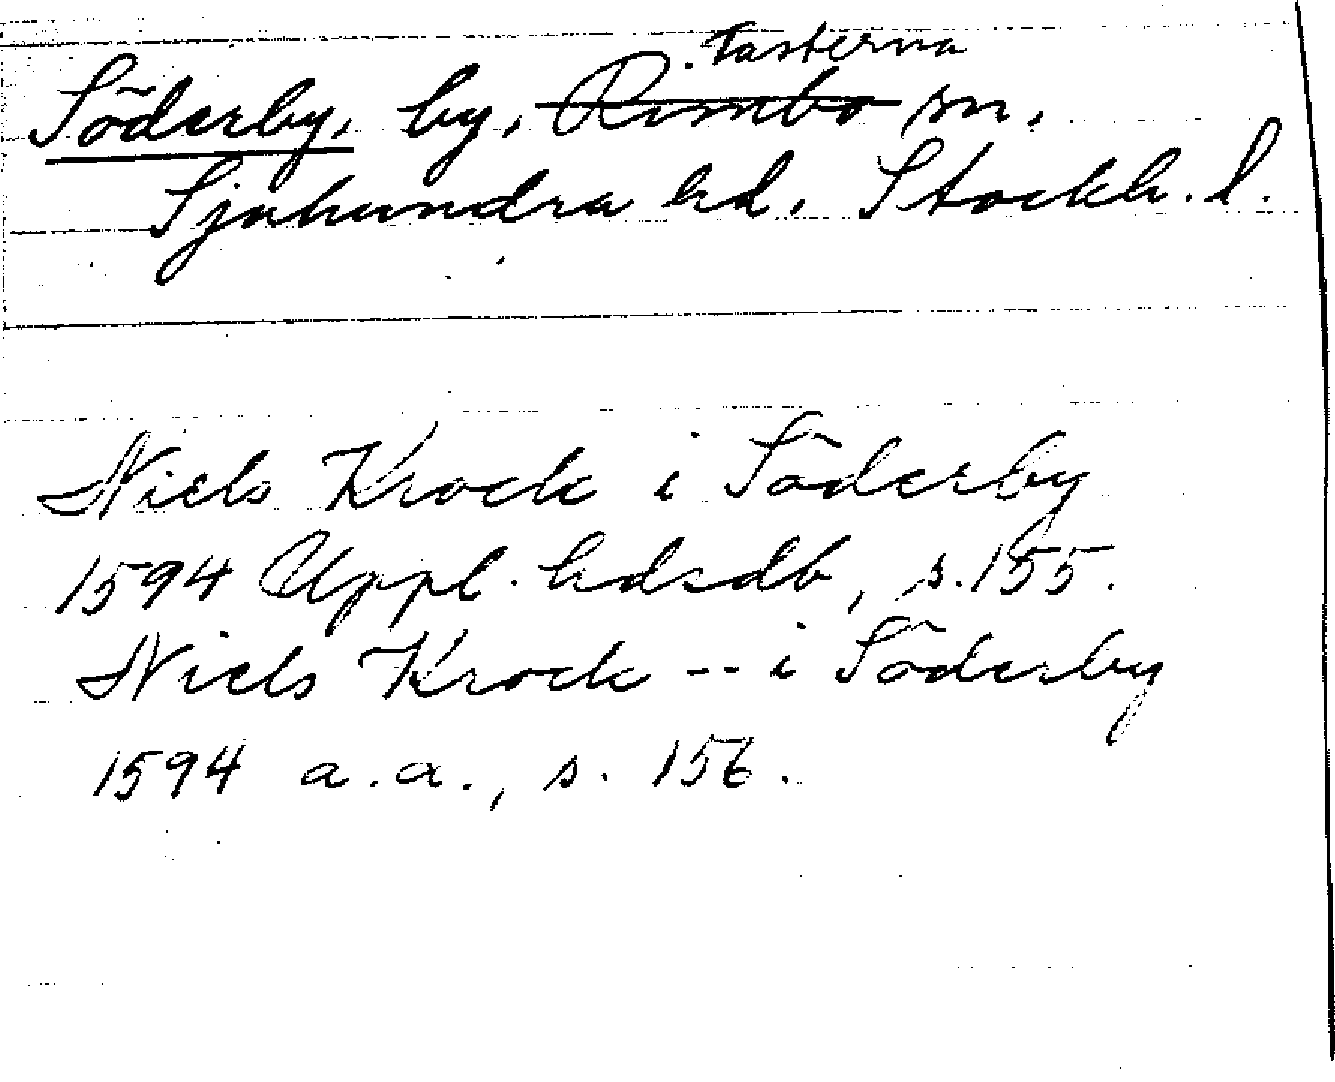 Söderby, by, Rimbo sn.
Fasterna
Sjuhundra hd. Stockh. l.
Niels Krock i Söderby
1594 Uppl. hdsdb, s. 155.
Niels Krock -- i Söderby
1594 a.a., s. 156.